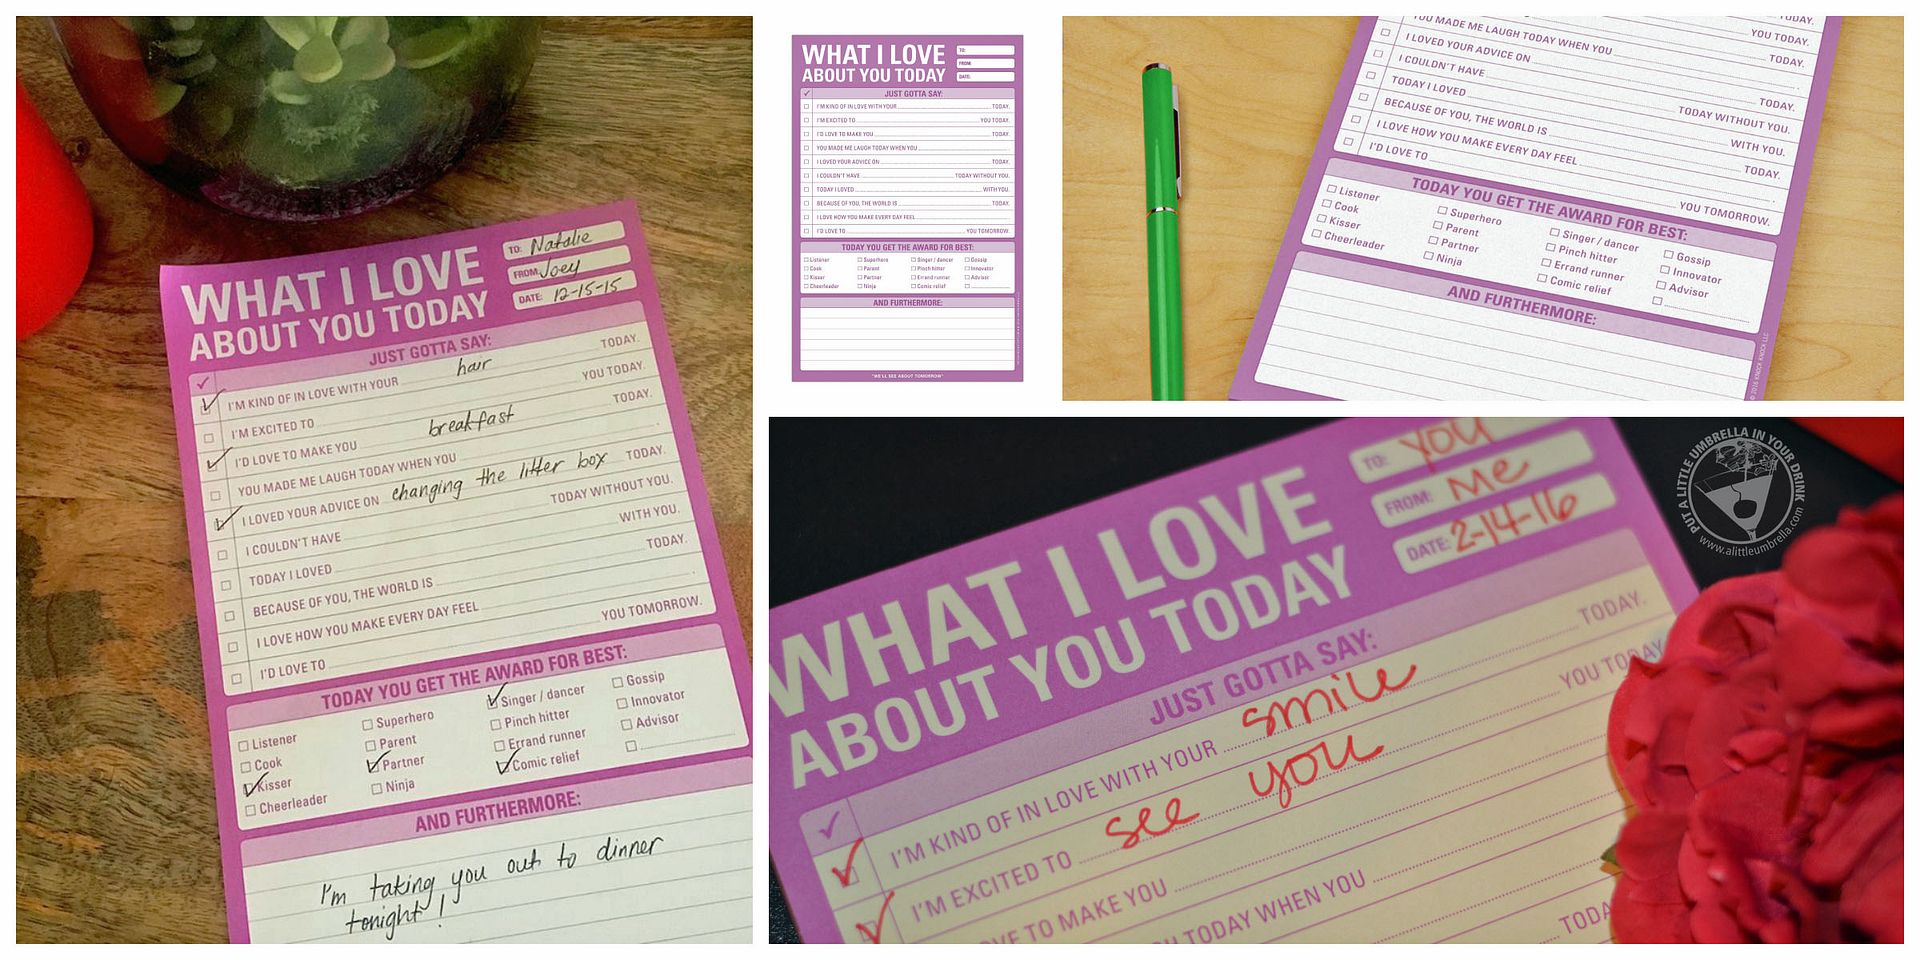 WHAT I LOVE
ABOUT YOU TODAY
TO: Natalie
FROM: Joey
DATE: 12-15-15
JUST GOTTA SAY:
I'M KIND OF IN LOVE WITH YOUR hair TODAY.
I'M EXCITED TO YOU TODAY.
I'D LOVE TO MAKE YOU breakfast TODAY.
YOU MADE ME LAUGH TODAY WHEN YOU .
I LOVED YOUR ADVICE ON changing the litter box TODAY.
I COULDN'T HAVE TODAY WITHOUT YOU.
TODAY I LOVED WITH YOU.
BECAUSE OF YOU, THE WORLD IS TODAY.
I LOVE HOW YOU MAKE EVERY DAY FEEL .
I'D LOVE TO YOU TOMORROW.
TODAY YOU GET THE AWARD FOR BEST:
Listener Superhero Singer / dancer Gossip
Cook Parent Pinch hitter Innovator
Kisser Partner Errand runner Advisor
Cheerleader Ninja Comic relief
AND FURTHERMORE:
I'm taking you out to dinner
tonight!
WHAT I LOVE
ABOUT YOU TODAY
TO:
FROM:
DATE:
JUST GOTTA SAY:
I'M KIND OF IN LOVE WITH YOUR TODAY.
I'M EXCITED TO YOU TODAY.
I'D LOVE TO MAKE YOU TODAY.
YOU MADE ME LAUGH TODAY WHEN YOU .
I LOVED YOUR ADVICE ON TODAY.
I COULDN'T HAVE TODAY WITHOUT YOU.
TODAY I LOVED WITH YOU.
BECAUSE OF YOU, THE WORLD IS TODAY.
I LOVE HOW YOU MAKE EVERY DAY FEEL .
I'D LOVE TO YOU TOMORROW.
TODAY YOU GET THE AWARD FOR BEST:
Listener Superhero Singer / dancer Gossip
Cook Parent Pinch hitter Innovator
Kisser Partner Errand runner Advisor
Cheerleader Ninja Comic relief
AND FURTHERMORE:
"WE'LL SEE ABOUT TOMORROW"
TODAY.
YOU TODAY.
TODAY.
YOU MADE ME LAUGH TODAY WHEN YOU .
I LOVED YOUR ADVICE ON TODAY.
I COULDN'T HAVE TODAY WITHOUT YOU.
TODAY I LOVED WITH YOU.
BECAUSE OF YOU, THE WORLD IS TODAY.
I LOVE HOW YOU MAKE EVERY DAY FEEL .
I'D LOVE TO YOU TOMORROW.
TODAY YOU GET THE AWARD FOR BEST:
Listener Superhero Singer / dancer Gossip
Cook Parent Pinch hitter Innovator
Kisser Partner Errand runner Advisor
Cheerleader Ninja Comic relief
AND FURTHERMORE:
© 2016 KNOCK KNOCK LLC
WHAT I LOVE
ABOUT YOU TODAY
TO: You
FROM: Me
DATE: 2-14-16
JUST GOTTA SAY:
I'M KIND OF IN LOVE WITH YOUR smile TODAY.
I'M EXCITED TO see you YOU TODAY
LOVE TO MAKE YOU
TODAY WHEN YOU
TODA
PUT A LITTLE UMBRELLA IN YOUR DRINK
www.alittleumbrella.com